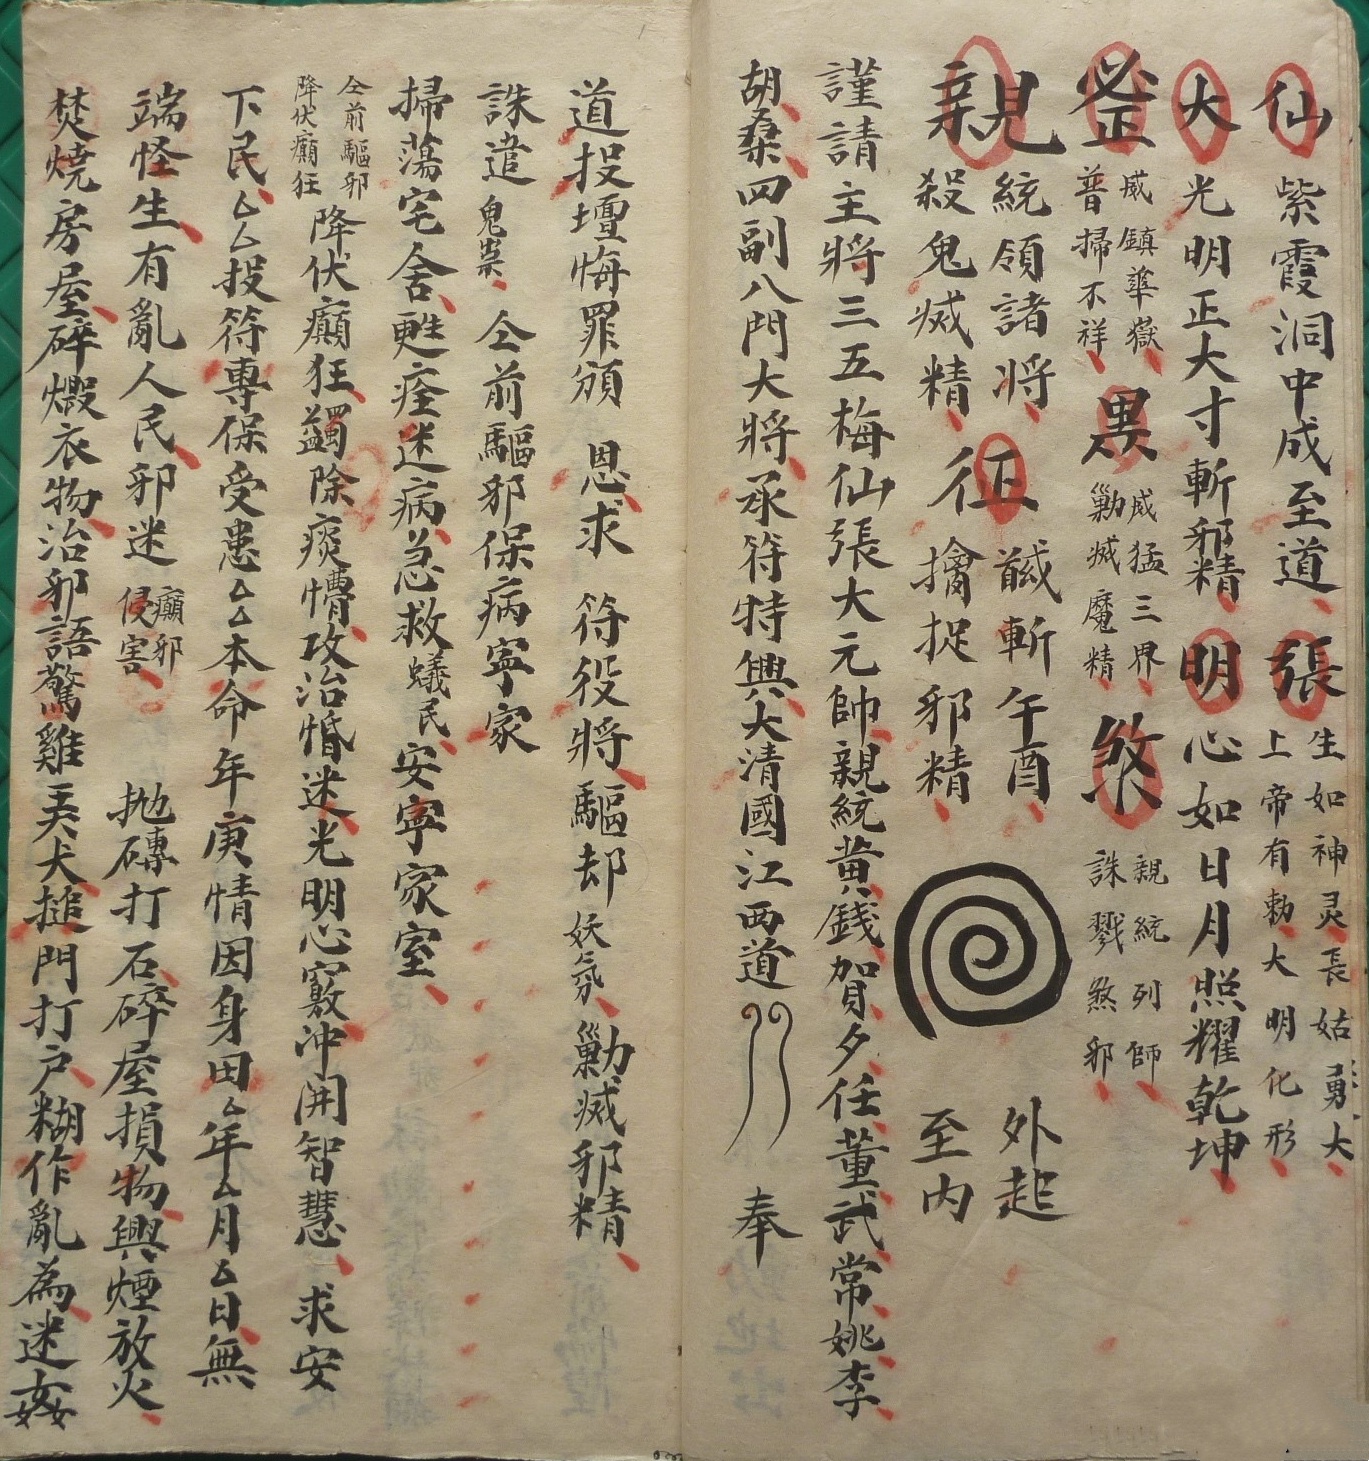 仙紫霞洞中成至道張生如神灵長姑勇大
上帝有勅大明化形
大光明正大寸斬邪精明心如日月照耀乾坤
蓥威鎮華嶽
普掃不祥
黑威猛三界
勦烕魔精
煞親統列帥
誅戮煞邪
親統領諸將
殺鬼烕精
征馘斬午酉
擒捉邪精
外起
至内
謹請主將三五梅仙張大元帥親統黄錢賀夕任董武常姚李
胡桑四副八門大將承符特興大清國江西道 奉
道投壇悔罪頒 恩求 符役將驅却妖氛勦烕邪精
誅遣鬼祟 仝前驅邪保病寕家
掃蕩宅舍甦痊迷病急救蟻民安寕家室
仝前驅邪
降伏癲狂
降伏癲狂蠲除痰懵攻治惛迷光明心竅沖開智慧求安
下民厶厶投符專保受患厶厶本命年庚情因身田厶年厶月厶日無
端怪生有亂人民邪迷癲邪
侵害 抛磚打石碎屋損物興煙放火
焚燒房屋碎燬衣物治邪語驚雞美犬搥門打户糊作亂為迷姦